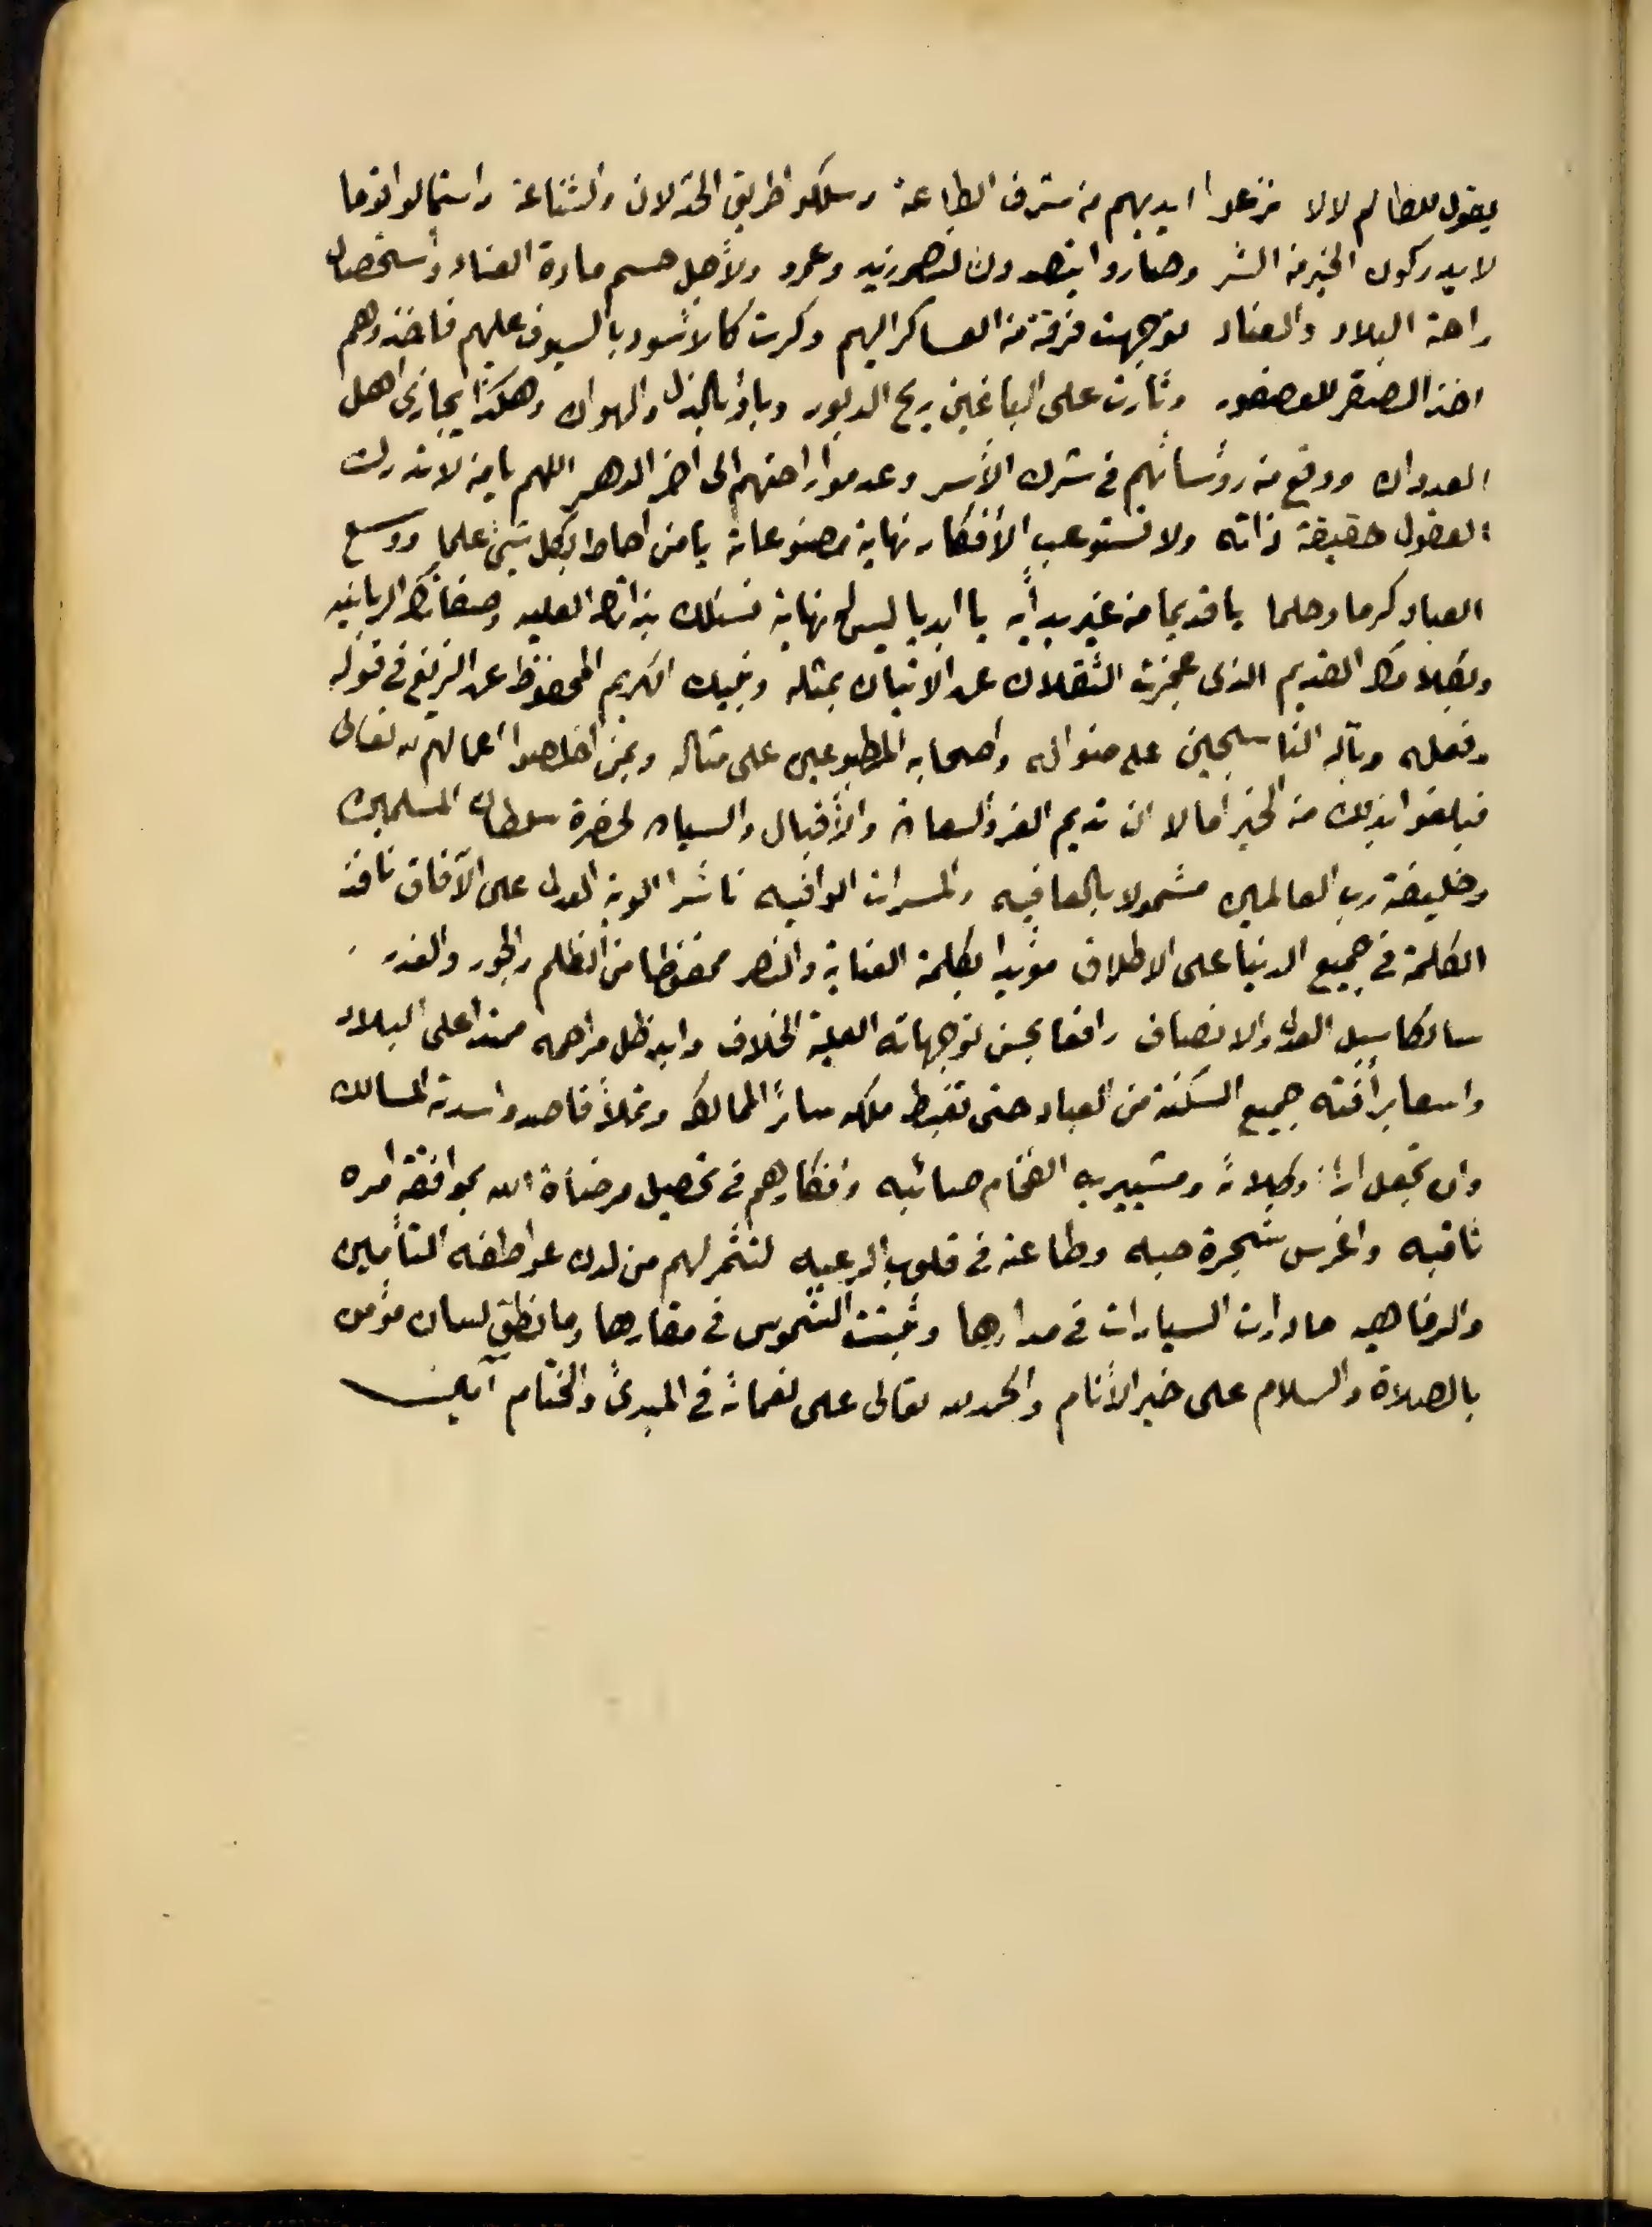 يقول للظالم لالا نزعوا ايديهم من شرف الطاعة وسلكوا طريق الخذلان والشناعة واستمالوا قوما
لا يدركون الخير من الشر وصاروا ينصدون لنصر زيد وعمرو ولأجل حسم مادة الفساد وأستحصال
راحة البلاد والعباد توجهت فرقة من العساكر اليهم وكرت كالأسود بالسيوف عليهم فاخذوهم
اخذ الصقر للعصفور وثارت على الباغين ريح الدبور وباؤ بالذل والهوان وهكذا يجازى اهل
العدوان ووقع من رؤسائهم في شرك الأسر وعدموا راحتهم الى اخر الدهر اللهم يا من لا تدرك
العقول حقيقة ذاته ولا تستوعب الأفكار نهاية مصنوعاته يا من احاط بكل شيئ علما ووسع
العباد كرما وحلما يا قديما من غير بدأيه يا ابديا ليس له نهاية نسئلك بذاتك العليه وصفاتك الربانيه
وبكلامك القديم الذى عجزت الثقلان عن الاتيان بمثله ونبيك الكريم المحفوظ عن الزيغ في قوله
وفعله وبآله الناسجين على منواله واصحابه المطبوعين على مثاله وبمن اخلصوا اعمالهم لله تعالى
فبلغوا بذلك من الخير امالا ان تديم العز والسعادة والأقبال والسياده لحضرة سلطان المسلمين
وخليفة رب العالمين مشمولا بالعافيه والمسرات الوافيه ناشرا الوية العدل على الآفاق نافذ
الكلمة في جميع الدنيا على الاطلاق مؤيدا بكلمة العناية والنصر محفوظا من الظلم والجور والغدر
سالكا سبل العدل والانصاف رافعا بحسن توجهاته العلية الخلاف وابد ظل مراحمه ممتدا على البلاد
واسعا برأفته جميع السكنة من العباد حتى تغبط ملكه سائر الممالك وتملأ قاصدوا سدته المسالك
وان تجعل اراء وكلائه ومشيريه الفخام صائبه وافكارهم في تحصيل مرضاة الله بموافقة امره
ثاقبه واغرس شجرة حبه وطاعته في قلوب الرعيه لتثمر لهم من لدن عواطفه التأمين
والرفاهيه ما دارت السيارات في مدارها وثبتت الشموس في مقارها وما نطق لسان مؤمن
بالصلاة والسلام على خير الأنام والحمد لله تعالى على نعمائه في المبدئ والختام آمين